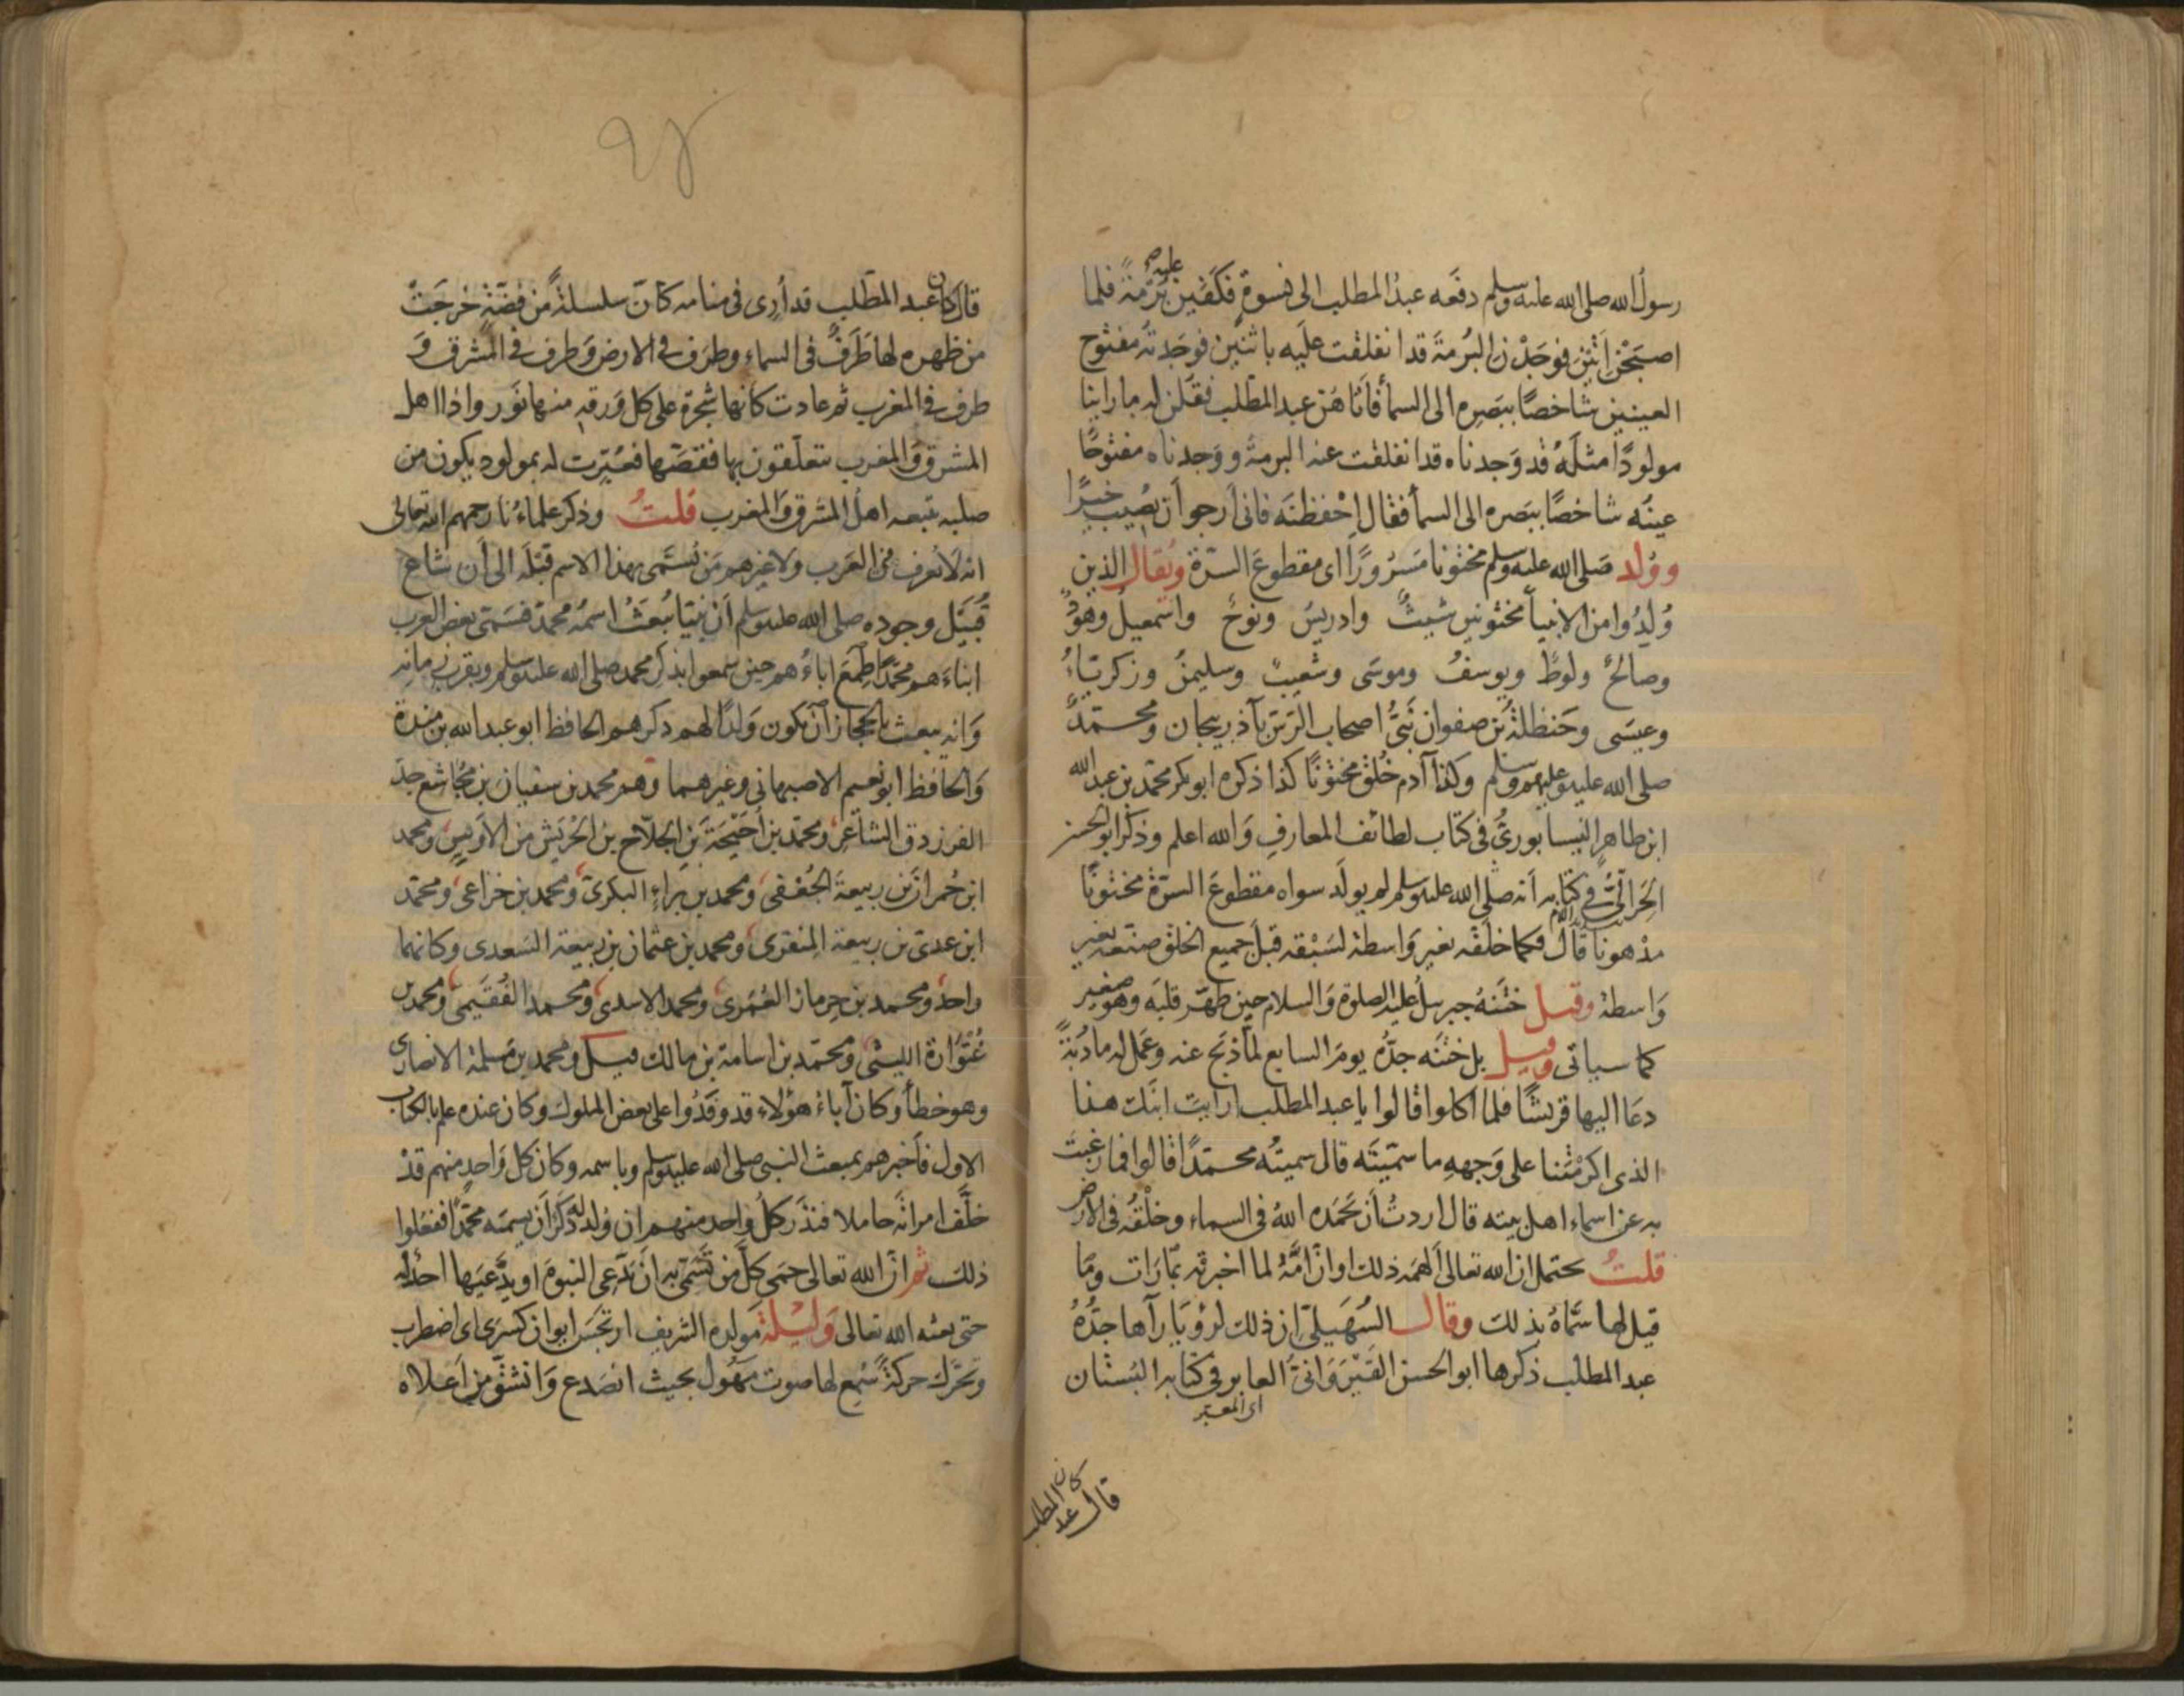 رسولُ الله صلى الله عليه وسلم دفعه عبدُ المطلب الى نسوةٍ فكفين عليه بُرمةً فلما
اصبَحْنَ اَتَيْنَ فوجَدْنَ البُرمةَ قد انفلقت عليه باثنين فوجدته مفتوح
العينين شاخصًا ببَصَرِه الى السماء فاتاهُنّ عبد المطلب فقلن له ما راينا
مولودًا مثلَهُ قد وَجدناه قد انفلقت عنه البرمة ووَجدناه مفتوحًا
عينُه شاخصًا ببَصَره الى السماء فقال اِحْفظنَه فانى اَرجوا اَن يُصيبَ خيرًا
ووُلد صَلى الله عليه وسلم مختونا مَسرُورًا اى مقطوعَ السُّرّة ويُقال الذين
وُلِدُوا من الانبياء مختونين شيثٌ وادريسُ ونوحٌ واسمعيلُ وهودٌ
وصالحٌ ولوطٌ ويوسفُ وموسَى وشعيبٌ وسليمنُ وزكرياءُ
وعيسَى وحَنظلةُ بن صفوان نَبىُّ اصحاب الرّسّ بآذربيجان ومحمّدٌ
صلى الله عليه وعليهم وسلم وكذا آدم خُلق مختونًا كذا ذكره ابو بكر محمّد بن عبد الله
ابن طاهر النيسابورىُّ فى كتاب لطائف المعارفِ وَالله اعلم وذكر ابو الحسن
الحَرَالىُّ فى كتابه اَنه صلى الله عليه وسلم لم يولَد سواه مقطوعَ السرّة مختونًا
مدهونًا قالَ فكما خلقه الله بغير وَاسطة لسَبْقه قبلَ جميع الخلق صنعه بغير
وَاسطة وقيل ختَنَهُ جبريلُ عليه الصلوة وَالسلام حين طهّر قلبَه وهو صغير
كما سياتى وقيل بل ختنَه جدُّه يومَ السابع لمّا ذبَح عنه وعَمل له مادُبَةً
دعَا اليها قريشًا فلما اكلوا قالوا يا عبد المطلب ارايتَ ابنَك هذا
الذى اكرَمْتَنا على وَجهِهِ ما سمّيتَه قال سميتُه محمّدًا قالوا فما رغبتَ
به عن اسماء اهل بيته قال اردتُ اَن يَحمَده اللهُ فى السماء وخلْقُه فى الارض
قلتُ يحتمل ان الله تعالى اَلهَمه ذلك او انّ امَّهُ لما اخبرته بما رَات وما
قيل لها سَمّاهُ بذلك وقال السُّهَيلىّ ان ذلك لرؤيَا رآها جدُّهُ
عبد المطلب ذكرها ابو الحسن القَيْرَوَانىّ العابر فى كتابه البُستان
اى المعبّر
قال كان عبد المطلب
قال كان عبد المطّلب قد اُرى فى منامه كانّ سلسلةً من فضّةٍ خرجَتْ
من ظهره لها طَرَفٌ فى السماء وطرَف فى الارض وَطرف فى المشرق وَ
طرف فى المغرب ثم عادت كانها شجرة على كل وَرقةٍ منها نور واذا اهل
المشرق وَالمغرب يتعلّقون بها فقصّها فعُبّرت له بمولود يكون من
صلبه تتبعه اهل المشرق وَالمغرب قلتُ وذكر علماءُنا رحمهم الله تعالى
انه لَا يُعرف فى العَرَب ولا غيرهم مَن تَسَمّى بهذا الاسم قَبْلَه الى اَن شاع
قُبَيْل وجوده صلى الله عليه وسلم اَن نبيّا يُبعَثُ اسمُه محمدٌ فسَمّى بعض العرب
ابناءَهم محمّدًا طَمَعَ اباءُهم حين سمعوا بذكر محمد صلى الله عليه وسلم وبقرب زمانه
وَانه يبعث بالحجاز اَن يكون وَلدًا لهم ذكرهم الحافظ ابو عبد الله بن مندة
وَالحافظ ابو نعيم الاصبهانى وغيرهما وهم محمد بن سفيان بن مجاشع جدّ
الفرزدق الشاعر، ومحمّد بن اُحَيحَةَ بن الجلّاح بن الحُرَيش من الاَوس، ومحمد
ابن حُمران بن ربيعةَ الجُعْفى، ومحمد بن بَراءٍ البكرى، ومحمد بن خزاعى، ومحمّد
ابن عدىّ بن ربيعة المِنقرى، ومحمد بن عثمان بن ربيعة السَعدى وكانهما
واحد، ومحمد بن حِرماز العُمَرى، ومحمد الاسدى، ومحمد الفُقَيمى، ومحمد بن
عُتْوَارة الليثى، ومحمّد بن اسامة بن مالك قيل ومحمد بن مَسلمة الانصارى
وهو خطأ وكان آباءُ هؤلاء قد وَفَدُوا على بعض الملوك وكان عنده علم بالكتاب
الاول فاَخبرهم بمبعث النبى صلى الله عليه وسلم وباسمه وكان كل وَاحدٍ منهم قدْ
خلَّف امراتَه حاملا فنذَر كلُ واحد منهم ان وُلد له ذكَرٌ اَن يسميَه محمّدًا ففعلوا
ذلك ثم انّ الله تعالى حمَى كلَّ من تَسَمّى به اَن يَدّعى النبوة او يَدَّعيَها احدٌ له
حتى بعثه الله تعالى وَليْلةَ مَولده الشريف ارتجَسَ ايوان كسرَى اى اضطرب
وتحَرَّك حركةً سُمِع لها صوت مَهُول بحيث انصَدع وَانشقّ من اَعلاه